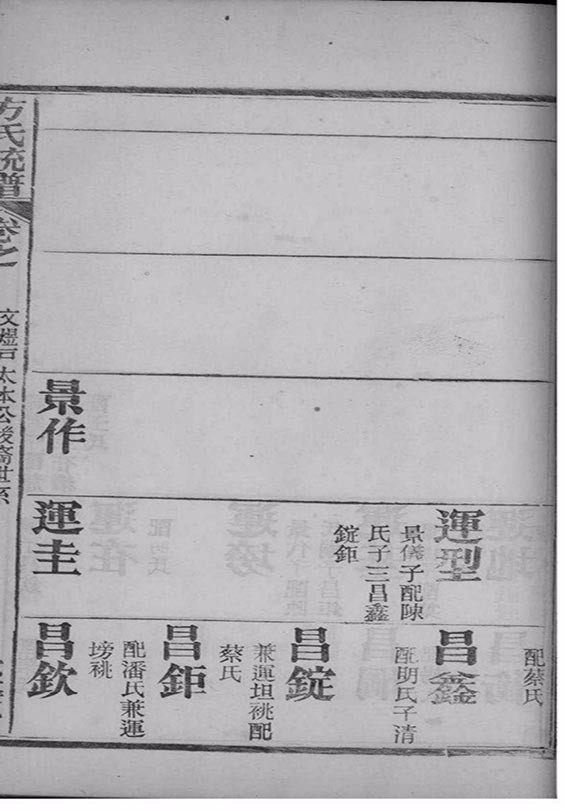 配蔡氏
運型
景儀子配陳
氏子三昌鑫
錠鉅
昌鑫
配明氏子清
昌錠
兼運坦祧配
蔡氏
昌鉅
配潘氏兼運
塝祧
景作
運圭
昌欽
方氏統譜
卷之
文煜戶太本公後裔世系